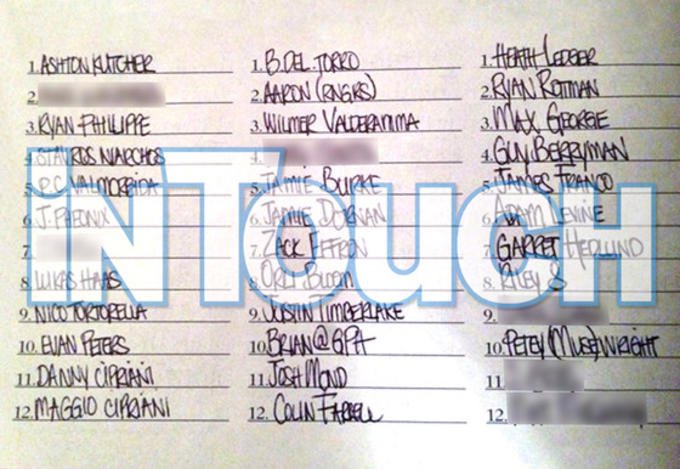 1. ASHTON KUTCHER
2.
3. RYAN PHILLIPPE
4. STAVROS NIARCHOS
5. P.C. VALMORBIDA
6. J. PHEONIX
7.
8. LUKAS HAAS
9. NICO TORTORELLA
10. EVAN PETERS
11. DANNY CIPRIANI
12. MAGGIO CIPRIANI
1. B. DEL TORRO
2. AARON (RNGRS)
3. WILMER VALDERAMMA
4.
5. JAMIE BURKE
6. JAMIE DORNAN
7. ZACK EFFRON
8. ORLY BLOOM
9. JUSTIN TIMBERLAKE
10. BRIAN @ GPA
11. JOSH MOND
12. COLIN FARRELL
1. HEATH LEDGER
2. RYAN ROTTMAN
3. MAX GEORGE
4. GUY BERRYMAN
5. JAMES FRANCO
6. ADAM LEVINE
7. GARRET HEDLUND
8. RILEY S
9.
10. PETEY (MUSE) WRIGHT
11.
12.
iNTouCH